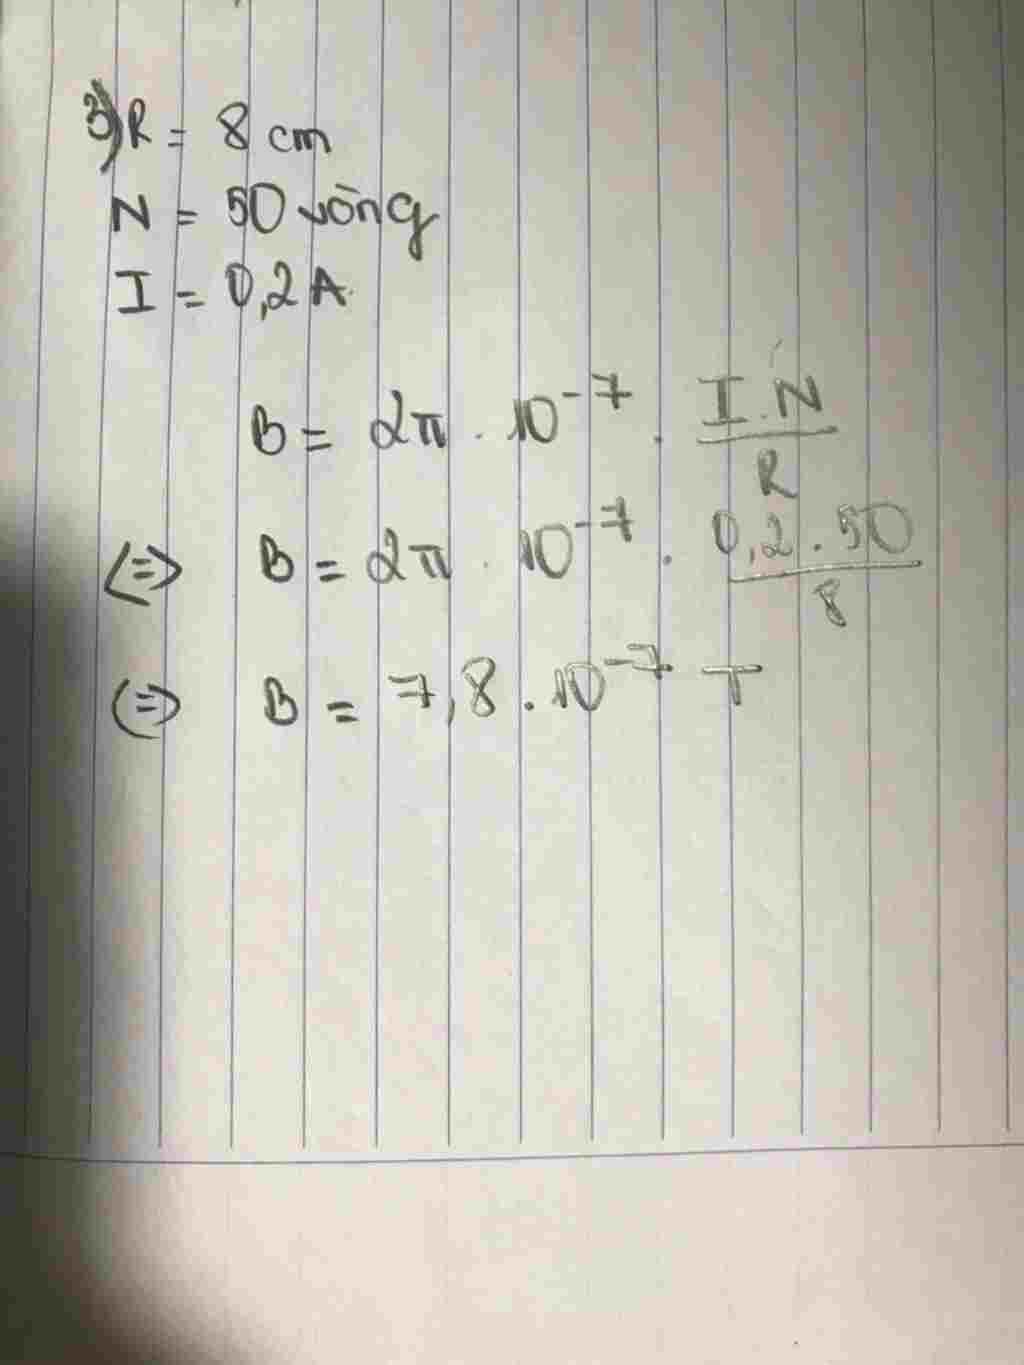 3) R = 8 cm
N = 50 vòng
I = 0,2 A.
B = 2π . 10⁻⁷ . I.N / R
<=> B = 2π . 10⁻⁷ . 0,2 . 50 / 8
<=> B = 7,8 . 10⁻⁷ T